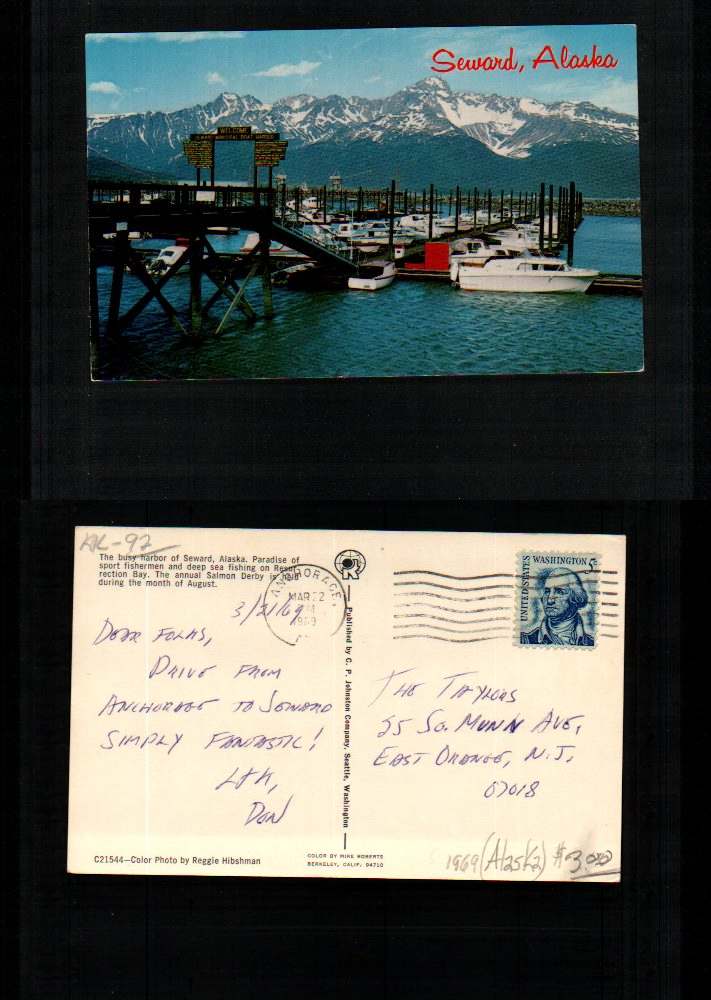 Seward, Alaska
WELCOME
SEWARD MUNICIPAL BOAT HARBOR
AK-97
The busy harbor of Seward, Alaska. Paradise of
sport fishermen and deep sea fishing on Resur-
rection Bay. The annual Salmon Derby is held
during the month of August.
ANCHORAGE,
MAR 22
1969
UNITED STATES WASHINGTON 5¢
3/21/69
DEAR FOLKS,
DRIVE FROM
ANCHORAGE TO SEWARD
SIMPLY FANTASTIC!
L+K,
DON
Published by C. P. Johnston Company, Seattle, Washington
THE TAYLORS
25 SO. MUNN AVE,
EAST ORANGE, N.J.
07018
C21544—Color Photo by Reggie Hibshman
COLOR BY MIKE ROBERTS
BERKELEY, CALIF. 94710
1969 (Alaska) #3.00